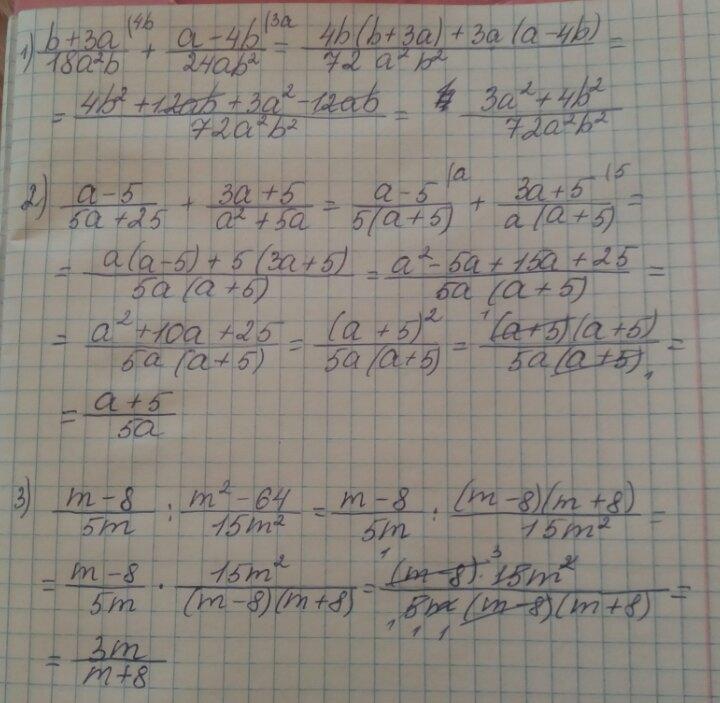 1) (b+3a)/(18a²b) |4b + (a-4b)/(24ab²) |3a = (4b(b+3a)+3a(a-4b))/(72 a²b²) =
= (4b²+12ab+3a²-12ab)/(72a²b²) = (3a²+4b²)/(72a²b²)
2) (a-5)/(5a+25) + (3a+5)/(a²+5a) = (a-5)/(5(a+5)) |a + (3a+5)/(a(a+5)) |5 =
= (a(a-5)+5(3a+5))/(5a(a+5)) = (a²-5a+15a+25)/(5a(a+5)) =
= (a²+10a+25)/(5a(a+5)) = (a+5)²/(5a(a+5)) = ¹(a+5)(a+5)/(5a(a+5)₁) =
= (a+5)/(5a)
3) (m-8)/(5m) : (m²-64)/(15m²) = (m-8)/(5m) : ((m-8)(m+8))/(15m²) =
= (m-8)/(5m) · (15m²)/((m-8)(m+8)) = (¹(m-8)·³15m²)/(₁5m₁(m-8)₁(m+8)) =
= (3m)/(m+8)